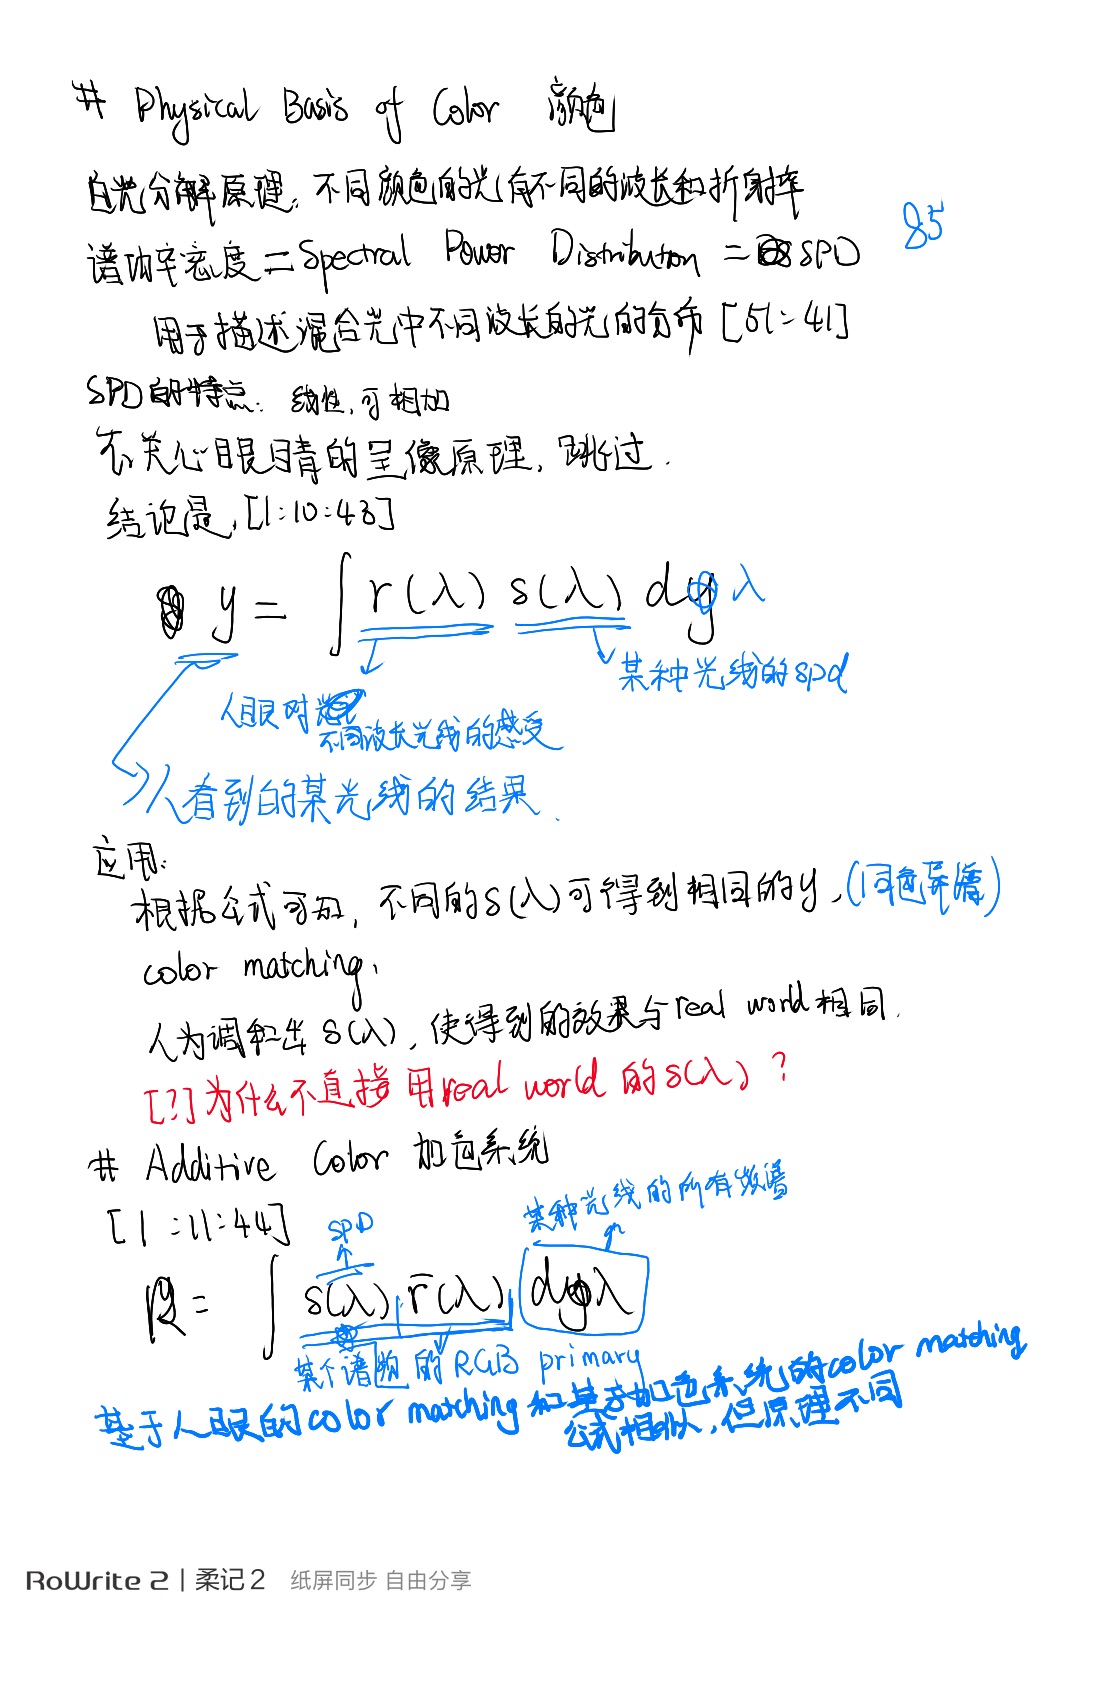 # Physical Basis of Color 颜色
白光分解原理. 不同颜色的光有不同的波长和折射率
85
谱功率密度 = Spectral Power Distribution = SPD
用于描述混合光中不同波长的光的分布 [51:41]
SPD的特点: 线性, 可相加
不关心眼睛的呈像原理, 跳过.
结论是, [1:10:43]
y = ∫ r(λ) s(λ) dλ
某种光线的spd
人眼对
不同波长光线的感受
人看到的某光线的结果.
应用:
根据公式可知, 不同的s(λ)可得到相同的y, (同色异谱)
color matching,
人为调和出 s(λ), 使得到的效果与real world相同.
[?]为什么不直接用real world 的s(λ)?
# Additive Color 加色系统
[1:11:44]
SPD
某种光线的所有频谱
R = ∫ s(λ) r̄(λ) dλ
某个谱的RGB primary
基于人眼的color matching和基于加色系统的color matching
公式相似, 但原理不同
RoWrite 2 | 柔记2 纸屏同步 自由分享